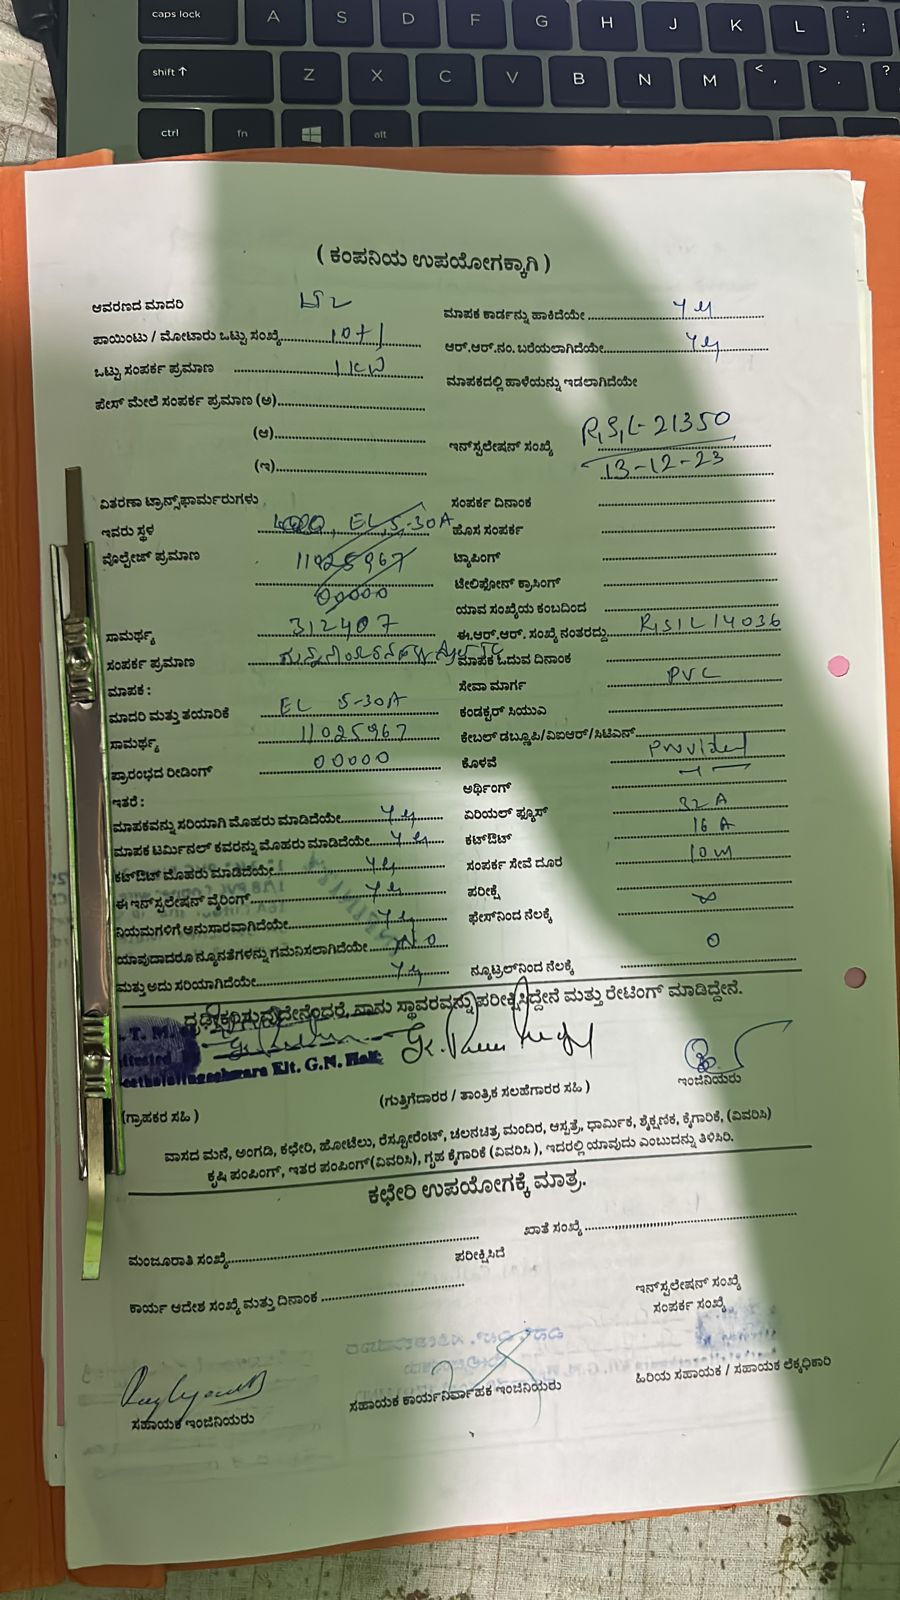 caps lock A S D F G H J K L : ;
shift ↑ Z X C V B N M < , > . ?
ctrl fn alt
( ಕಂಪನಿಯ ಉಪಯೋಗಕ್ಕಾಗಿ )
ಆವರಣದ ಮಾದರಿ
ಮಾಪಕ ಕಾರ್ಡನ್ನು ಹಾಕಿದೆಯೇ
ಪಾಯಿಂಟು / ಮೋಟಾರು ಒಟ್ಟು ಸಂಖ್ಯೆ 10+1
ಆರ್.ಆರ್.ನಂ. ಬರೆಯಲಾಗಿದೆಯೇ
ಒಟ್ಟು ಸಂಪರ್ಕ ಪ್ರಮಾಣ 1KW
ಮಾಪಕದಲ್ಲಿ ಹಾಳೆಯನ್ನು ಇಡಲಾಗಿದೆಯೇ
ಪೇಸ್ ಮೇಲೆ ಸಂಪರ್ಕ ಪ್ರಮಾಣ (ಅ)
(ಆ)
ಇನ್‌ಸ್ಟಲೇಷನ್ ಸಂಖ್ಯೆ R,S,L-21350
(ಇ)
13-12-23
ವಿತರಣಾ ಟ್ರಾನ್ಸ್‌ಫಾರ್ಮರುಗಳು
ಸಂಪರ್ಕ ದಿನಾಂಕ
ಇವರು ಸ್ಥಳ EL,5-30A
ಹೊಸ ಸಂಪರ್ಕ
ವೋಲ್ಟೇಜ್ ಪ್ರಮಾಣ 11025967
ಟ್ಯಾಪಿಂಗ್
00000
ಟೇಲಿಫೋನ್ ಕ್ರಾಸಿಂಗ್
ಯಾವ ಸಂಖ್ಯೆಯ ಕಂಬದಿಂದ
ಸಾಮರ್ಥ್ಯ 312407
ಈ.ಆರ್.ಆರ್. ಸಂಖ್ಯೆ ನಂತರದ್ದು R,S,L 14036
ಸಂಪರ್ಕ ಪ್ರಮಾಣ
ಮಾಪಕ ಓದುವ ದಿನಾಂಕ
ಮಾಪಕ :
ಸೇವಾ ಮಾರ್ಗ PVC
ಮಾದರಿ ಮತ್ತು ತಯಾರಿಕೆ EL 5-30A
ಕಂಡಕ್ಟರ್ ಸಿಯುವಿ
ಸಾಮರ್ಥ್ಯ 11025967
ಕೇಬಲ್ ಡಬ್ಲೂಪಿ/ವಿಐಆರ್/ಸಿಟಿಎನ್
ಪ್ರಾರಂಭದ ರೀಡಿಂಗ್ 00000
ಕೊಳವೆ Provided
ಇತರೆ :
ಅರ್ಥಿಂಗ್
ಮಾಪಕವನ್ನು ಸರಿಯಾಗಿ ಮೊಹರು ಮಾಡಿದೆಯೇ
ಏರಿಯಲ್ ಫ್ಯೂಸ್ 32 A
ಮಾಪಕ ಟರ್ಮಿನಲ್ ಕವರನ್ನು ಮೊಹರು ಮಾಡಿದೆಯೇ
ಕಟ್‌ಔಟ್ 16 A
ಕಟ್‌ಔಟ್ ಮೊಹರು ಮಾಡಿದೆಯೇ
ಸಂಪರ್ಕ ಸೇವೆ ದೂರ 10m
ಈ ಇನ್‌ಸ್ಟಲೇಷನ್ ವೈರಿಂಗ್
ಪರೀಕ್ಷೆ
ನಿಯಮಗಳಿಗೆ ಅನುಸಾರವಾಗಿದೆಯೇ
ಫೇಸ್‌ನಿಂದ ನೆಲಕ್ಕೆ
ಯಾವುದಾದರೂ ನ್ಯೂನತೆಗಳನ್ನು ಗಮನಿಸಲಾಗಿದೆಯೇ NO
ಮತ್ತು ಅದು ಸರಿಯಾಗಿದೆಯೇ
ನ್ಯೂಟ್ರಲ್‌ನಿಂದ ನೆಲಕ್ಕೆ 0
ದೃಢೀಕರಿಸುವುದೇನೆಂದರೆ, ನಾನು ಸ್ಥಾವರವನ್ನು ಪರೀಕ್ಷಿಸಿದ್ದೇನೆ ಮತ್ತು ರೇಟಿಂಗ್ ಮಾಡಿದ್ದೇನೆ.
Elt. G.N. Halli
(ಗ್ರಾಹಕರ ಸಹಿ )
(ಗುತ್ತಿಗೆದಾರರ / ತಾಂತ್ರಿಕ ಸಲಹೆಗಾರರ ಸಹಿ )
ಇಂಜಿನಿಯರು
ವಾಸದ ಮನೆ, ಅಂಗಡಿ, ಕಛೇರಿ, ಹೋಟೆಲು, ರೆಸ್ಟೋರೆಂಟ್, ಚಲನಚಿತ್ರ ಮಂದಿರ, ಆಸ್ಪತ್ರೆ, ಧಾರ್ಮಿಕ, ಶೈಕ್ಷಣಿಕ, ಕೈಗಾರಿಕೆ, (ವಿವರಿಸಿ)
ಕೃಷಿ ಪಂಪಿಂಗ್, ಇತರ ಪಂಪಿಂಗ್ (ವಿವರಿಸಿ), ಗೃಹ ಕೈಗಾರಿಕೆ (ವಿವರಿಸಿ ), ಇದರಲ್ಲಿ ಯಾವುದು ಎಂಬುದನ್ನು ತಿಳಿಸಿರಿ.
ಕಛೇರಿ ಉಪಯೋಗಕ್ಕೆ ಮಾತ್ರ.
ಮಂಜೂರಾತಿ ಸಂಖ್ಯೆ
ಖಾತೆ ಸಂಖ್ಯೆ
ಪರೀಕ್ಷಿಸಿದೆ
ಕಾರ್ಯ ಆದೇಶ ಸಂಖ್ಯೆ ಮತ್ತು ದಿನಾಂಕ
ಇನ್‌ಸ್ಟಲೇಷನ್ ಸಂಖ್ಯೆ
ಸಂಪರ್ಕ ಸಂಖ್ಯೆ
ಸಹಾಯಕ ಇಂಜಿನಿಯರು
ಸಹಾಯಕ ಕಾರ್ಯನಿರ್ವಾಹಕ ಇಂಜಿನಿಯರು
ಹಿರಿಯ ಸಹಾಯಕ / ಸಹಾಯಕ ಲೆಕ್ಕಧಿಕಾರಿ